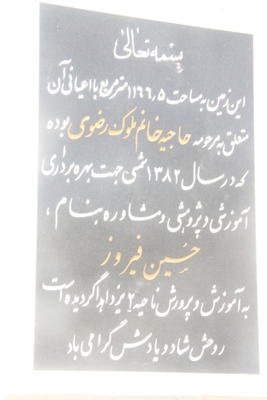 بسمه تعالی
این زمین به مساحت ۱۱۶۶٫۵ مترمربع با اعیانی آن
متعلق به مرحومه حاجیه خانم ملوک رضوی بوده
که در سال ۱۳۸۲ شمسی جهت بهره برداری
آموزشی و پژوهشی و مشاوره بنام ،
حسین فیروز
به آموزش و پرورش ناحیه ۲ یزد اهدا گردیده است
روحش شاد و یادش گرامی باد